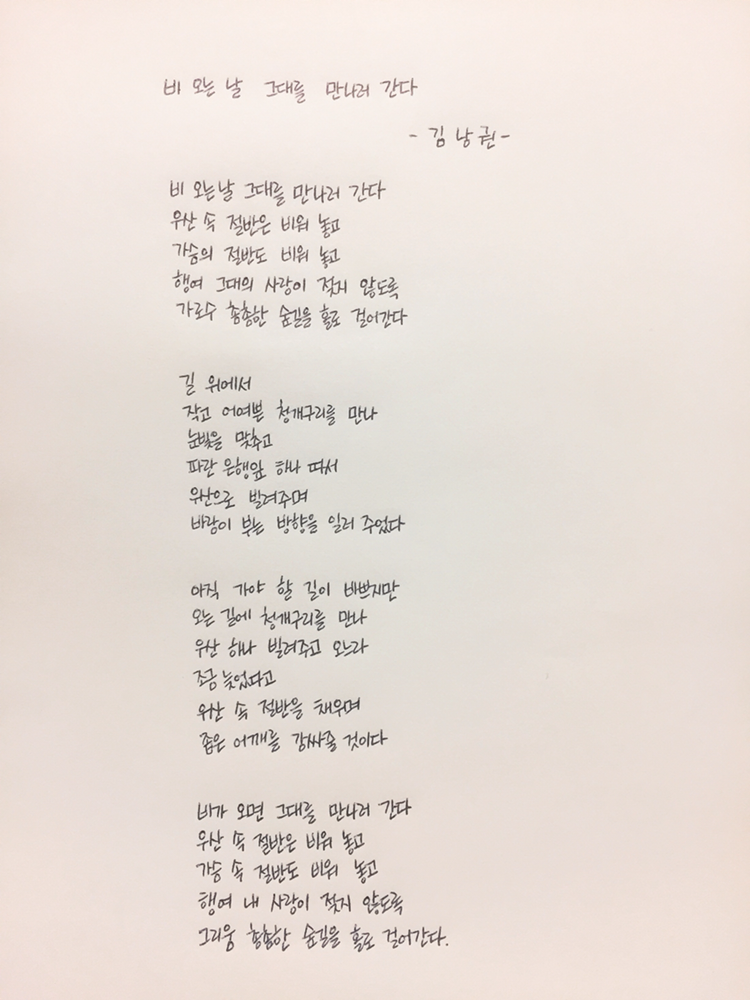 비 오는 날 그대를 만나러 간다
- 김낭권 -
비 오는날 그대를 만나러 간다
우산 속 절반은 비워 놓고
가슴의 절반도 비워 놓고
행여 그대의 사랑이 젖지 않도록
가로수 총총한 숲길을 홀로 걸어간다
길 위에서
작고 어여쁜 청개구리를 만나
눈빛을 맞추고
파란 은행잎 하나 따서
우산으로 빌려주며
바람이 부는 방향을 일러 주었다
아직 가야 할 길이 바쁘지만
오는 길에 청개구리를 만나
우산 하나 빌려주고 오느라
조금 늦었다고
우산 속 절반을 채우며
좁은 어깨를 감싸줄 것이다
비가 오면 그대를 만나러 간다
우산 속 절반은 비워 놓고
가슴 속 절반도 비워 놓고
행여 내 사랑이 젖지 않도록
그리움 총총한 숲길을 홀로 걸어간다.